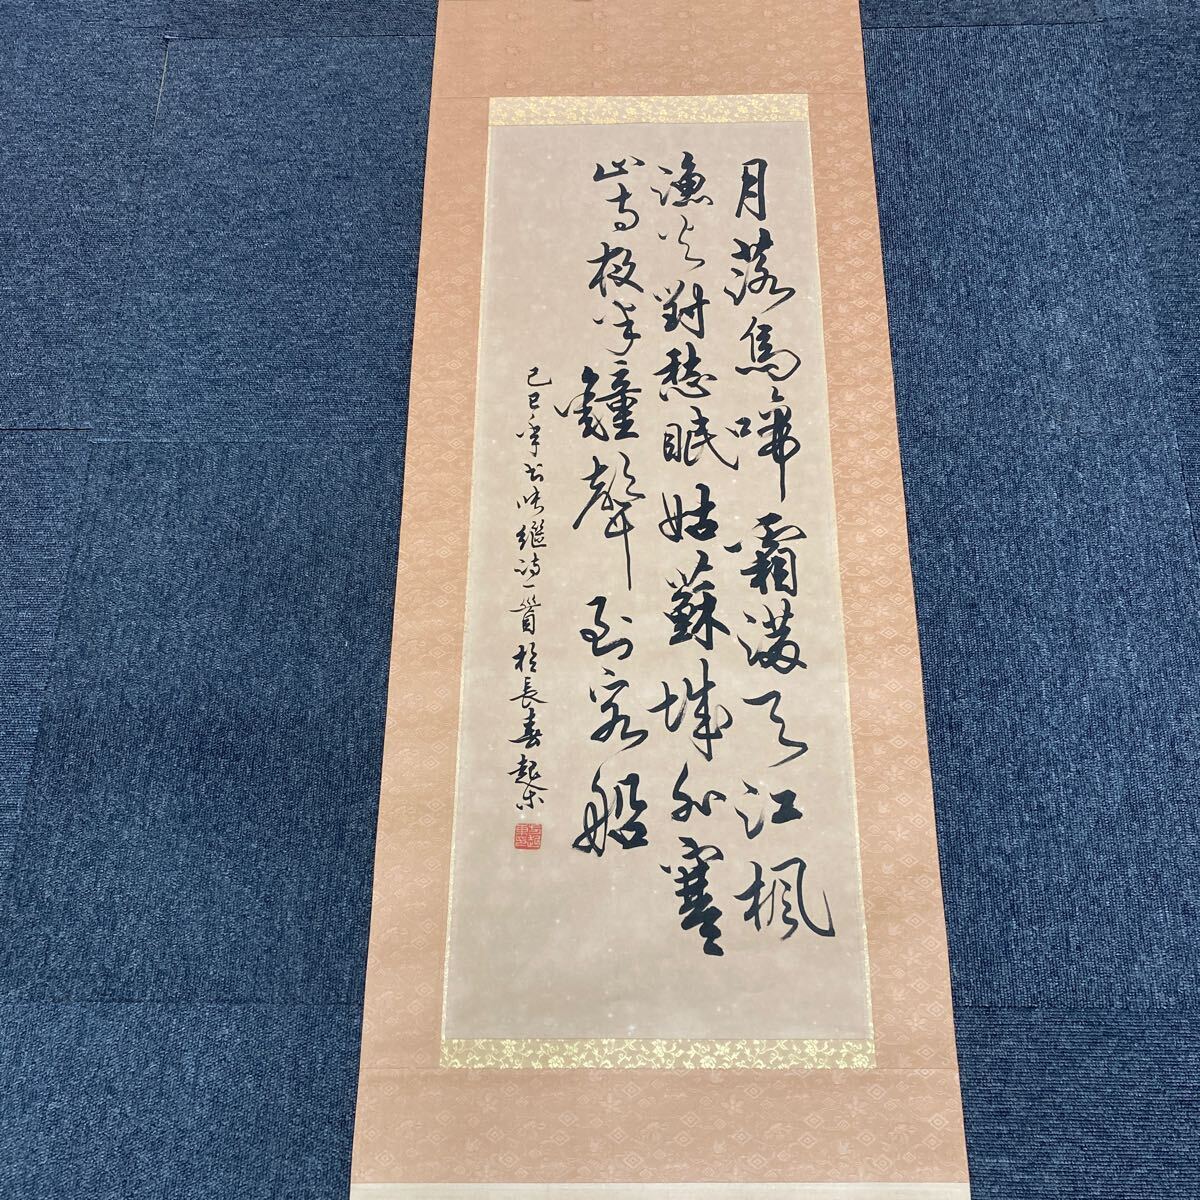 月落烏啼霜滿天江楓
漁火對愁眠姑蘇城外寒
山寺夜半鐘聲到客船
己巳年书张繼诗一首於長春